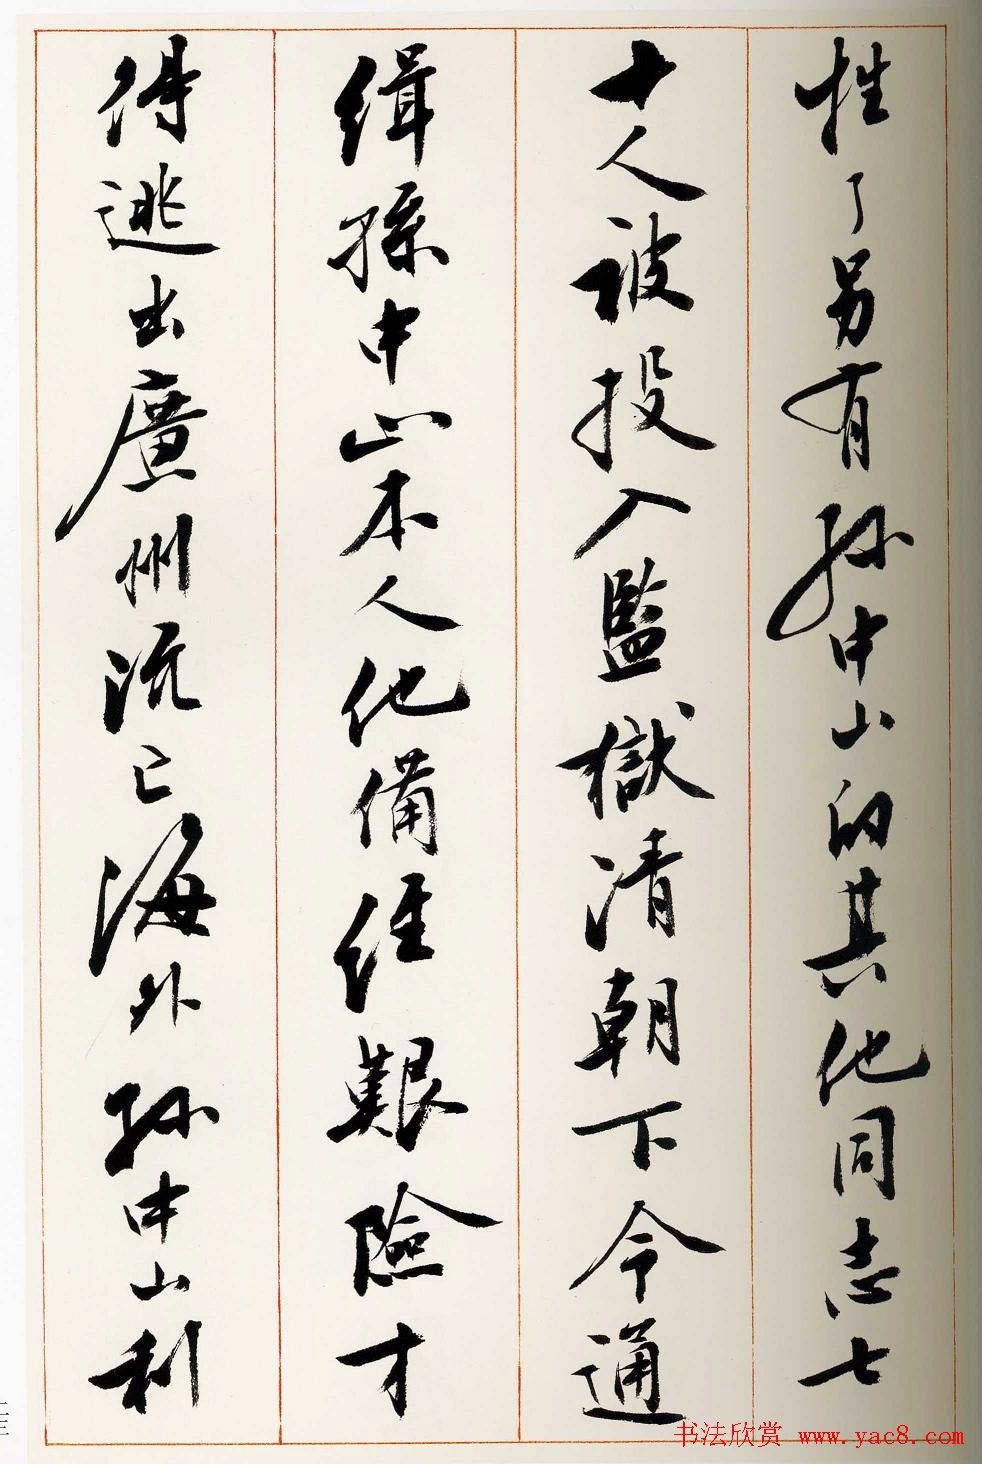 牲了另有孙中山的其他同志七
十人被投入監獄清朝下令通
缉孫中山本人他備经艱險才
得逃出廣州流亡海外孙中山利
书法欣赏 www.yac8.com